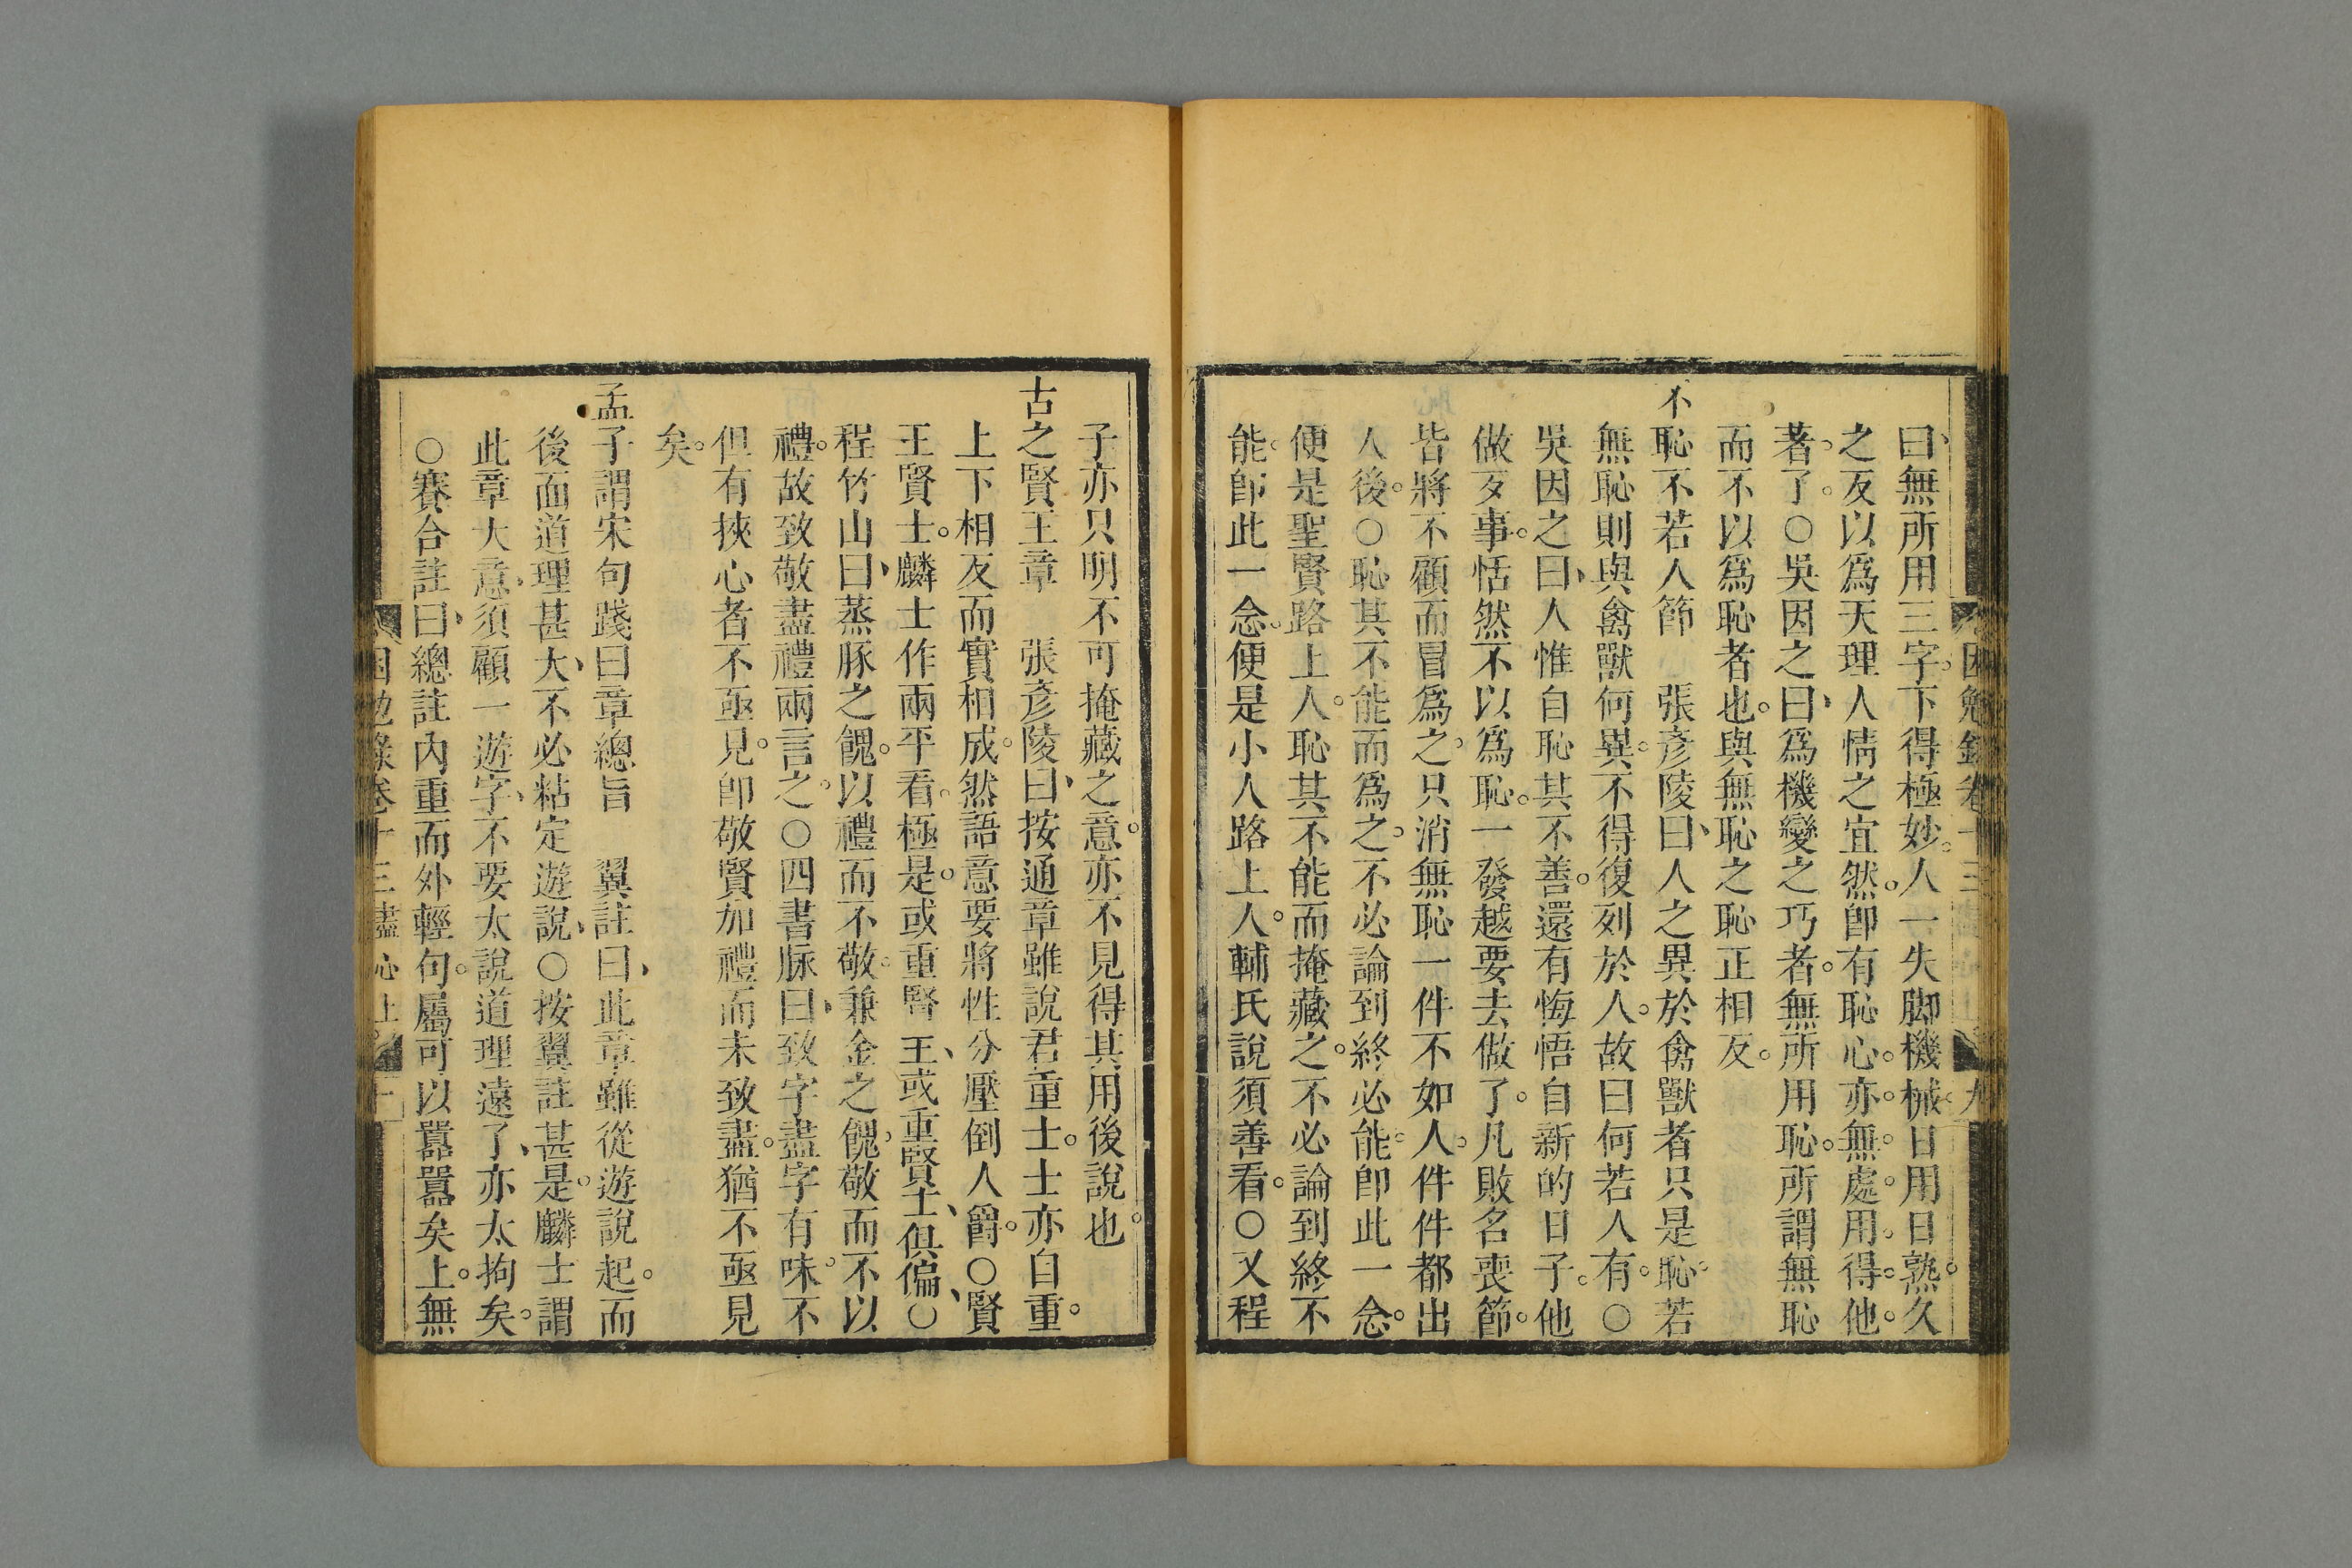 曰無所用三字下得極妙人一失脚機械日用日熟久
之反以爲天理人情之宜然卽有恥心亦無處用得他
著了○吳因之曰爲機變之巧者無所用恥所謂無恥
而不以爲恥者也與無恥之恥正相反
不恥不若人節　張彥陵曰人之異於禽獸者只是恥若
無恥則與禽獸何異不得復列於人故曰何若人有○
吳因之曰人惟自恥其不善還有悔悟自新的日子他
做歹事恬然不以爲恥一發越要去做了凡敗名喪節
皆將不顧而冒爲之只消無恥一件不如人件件都出
人後○恥其不能而爲之不必論到終必能卽此一念
便是聖賢路上人恥其不能而掩藏之不必論到終不
能卽此一念便是小人路上人輔氏說須善看○又程
子亦只明不可掩藏之意亦不見得其用後說也
古之賢王章　張彥陵曰按通章雖說君重士士亦自重
上下相反而實相成然語意要將性分壓倒人爵○賢
王賢士麟士作兩平看極是或重賢王或重賢士俱偏○
程竹山曰蒸豚之餽以禮而不敬兼金之餽敬而不以
禮故致敬盡禮兩言之○四書脉曰致字盡字有味不
但有挾心者不亟見卽敬賢加禮而未致盡猶不亟見
矣
孟子謂宋句踐曰章總旨　翼註曰此章雖從遊說起而
後面道理甚大不必粘定遊說○按翼註甚是麟士謂
此章大意須顧一遊字不要太說道理遠了亦太拘矣
○賽合註曰總註內重而外輕句屬可以囂囂矣上無
困勉錄卷十三盡心上　十